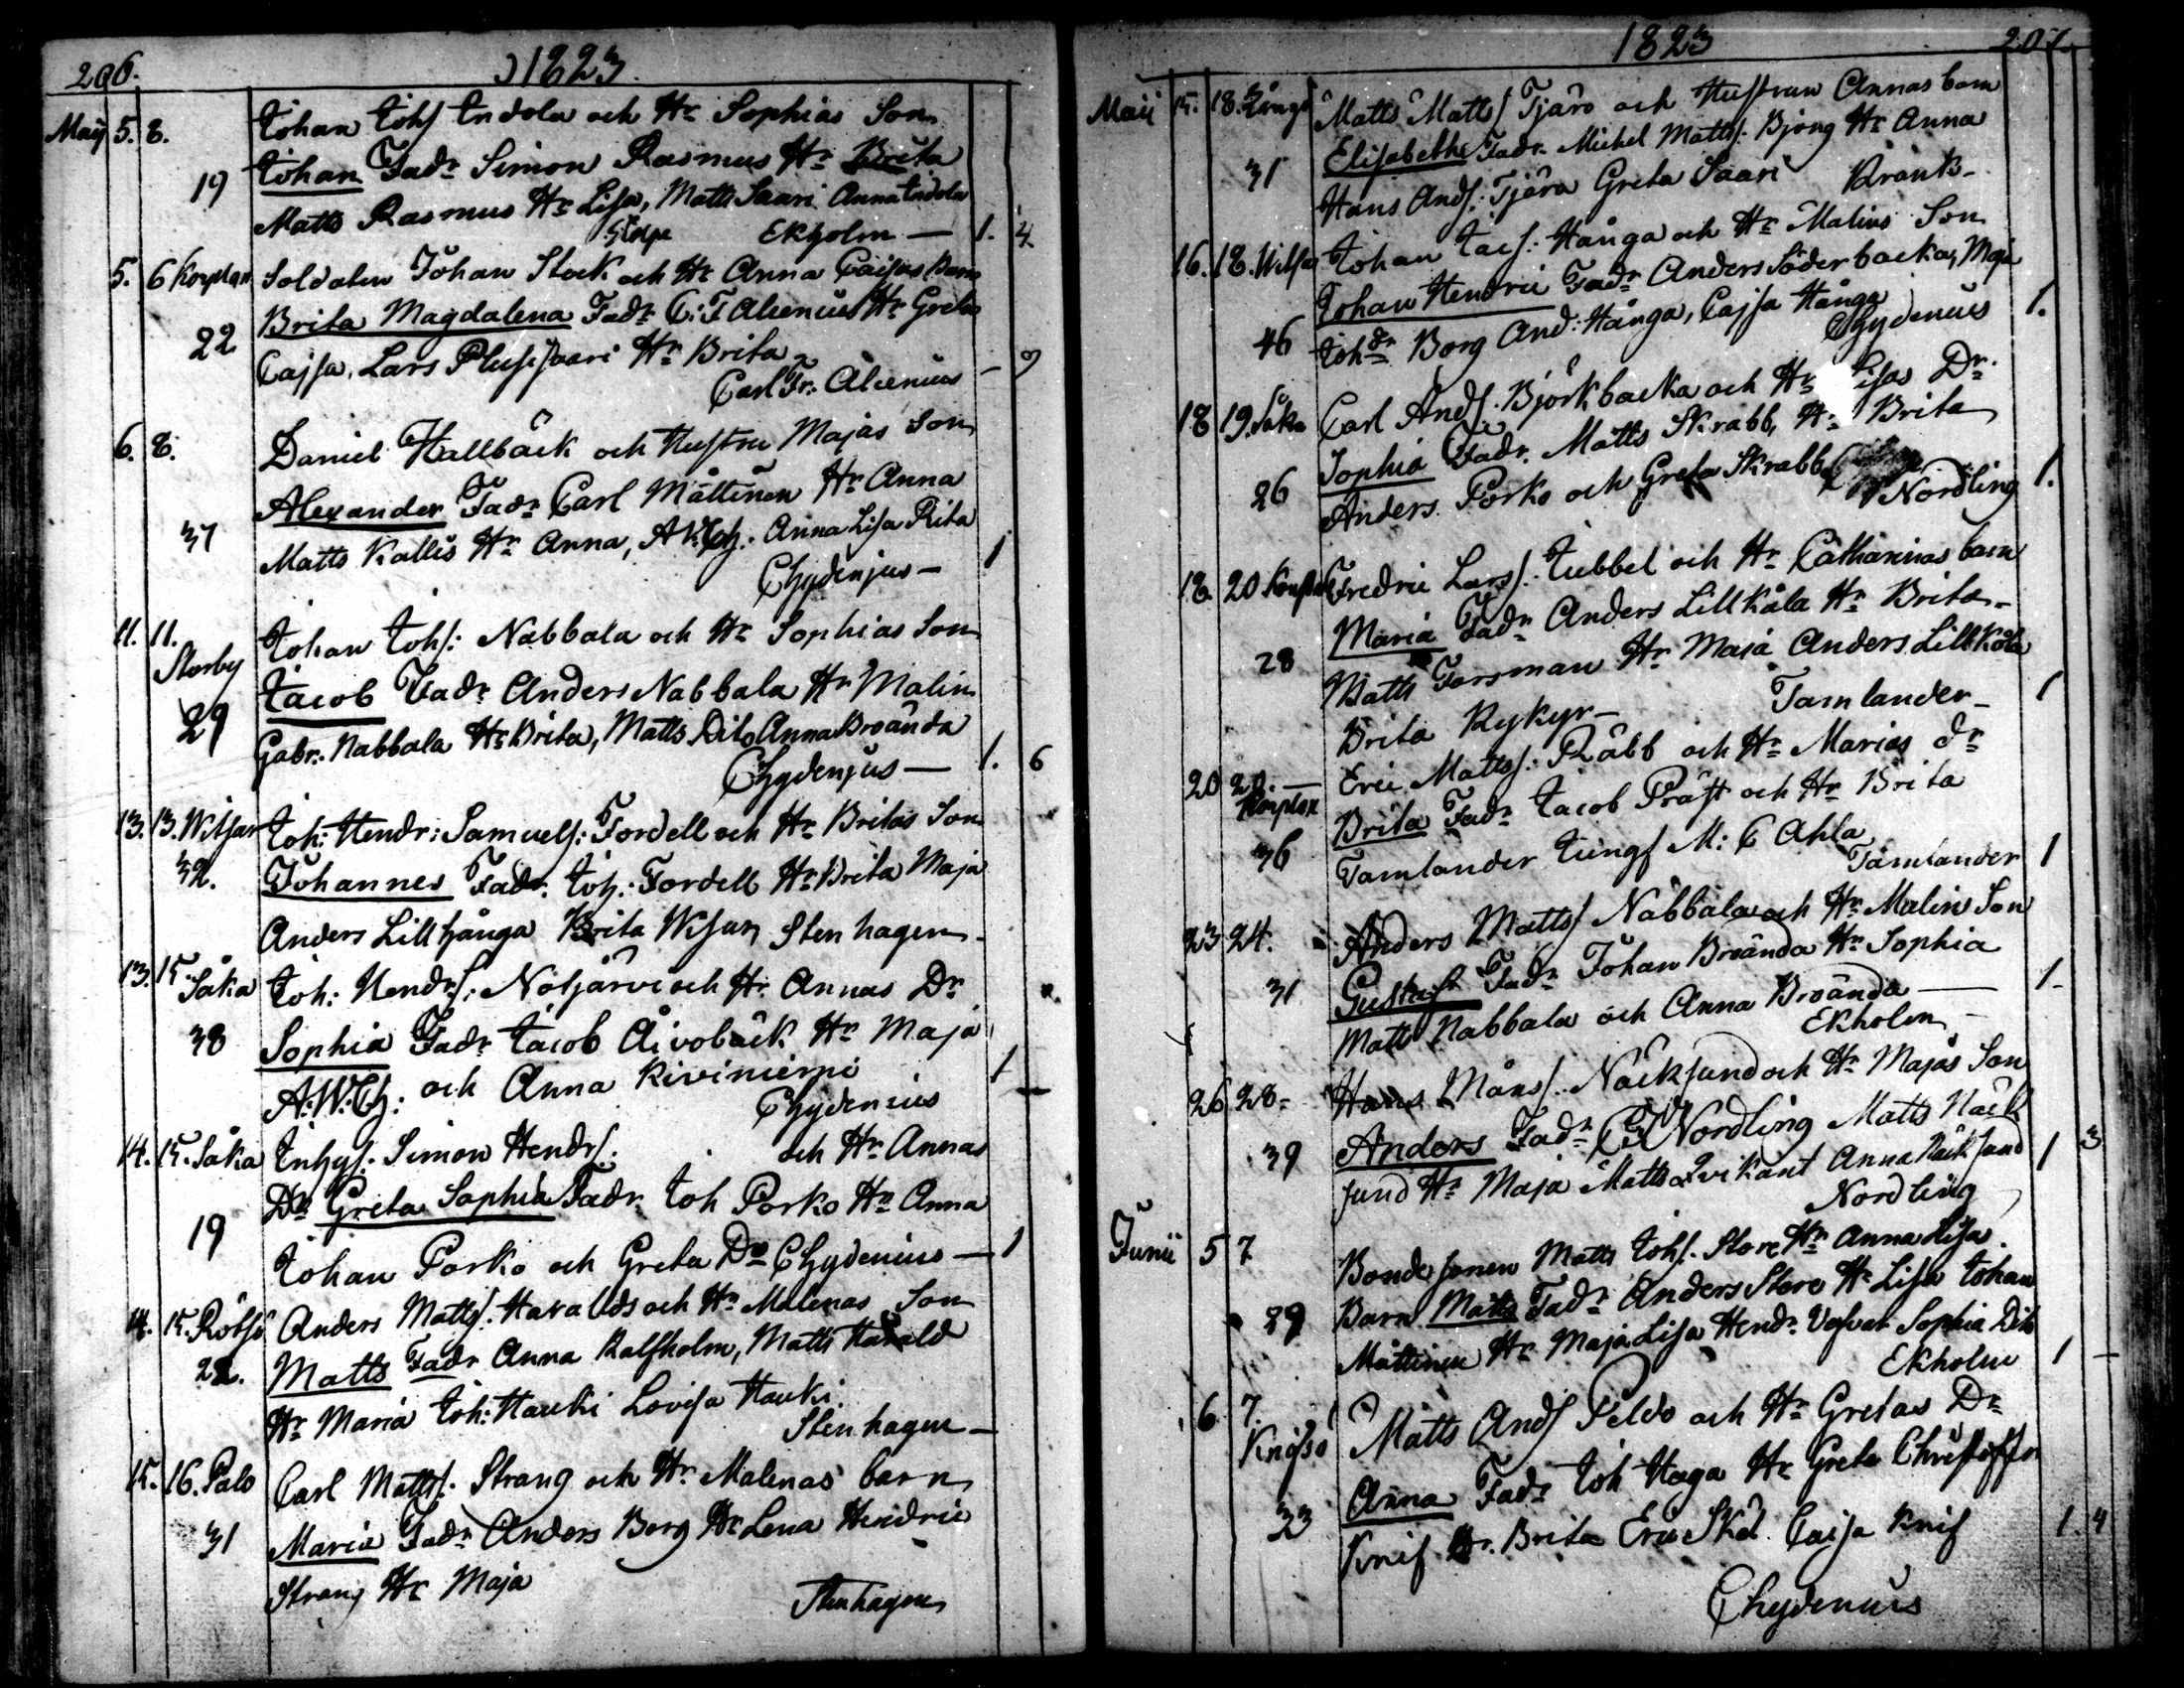 206. 1823.
Maij 5. 8. Johan Johs Indola och Hr Sophias Son
19 Johan Fadr Simon Rasmus Hr Brita
Matts Rasmus Hr Lisa, Matts Saari Anna Indola
Ekholm — 1. 4.
5. 6 Korplax Soldaten Johan Stock och Hr Anna Caisas Barn
22 Brita Magdalena Fadr C: F Alcenius Hr Greta
Cajsa, Lars Plussisaari Hr Brita
Carl Fr. Alcenius — 9
6. 8. Daniel Hallbäck och Hustru Majas Son
37 Alexander Fadr Carl Mattinen Hr Anna
Matts Kallis Hr Anna, A.W.Ch: Anna Lisa Rita
Chydenjus — 1
11. 11. Johan Johs: Nabbala och Hr Sophias Son
Storby
29 Jacob Fadr Anders Nabbala Hr Malin
Gabr. Nabbala Hr Brita, Matts Dito Anna Broända
Chydenjus — 1. 6
13. 13. Witsar Joh: Hendr: Samuels: Fordell och Hr Britas Son
32. Johannes Fadr. Joh: Fordell Hr Brita Maja
Anders Lillhånga Brita Witsar Stenhagen
13. 15. Såka Joh: Hendrs: Nötjärvi och Hr Annas Dr
38 Sophia Fadr Jacob Åivobäck Hr Maja
A:W:Ch: och Anna Kiviniemi 1
Chydenius —
14. 15. Såka Inhys: Simon Hendrs. och Hr Annas
19 Dr Greta Sophia Fadr Joh Porko Hr Anna
Johan Porko och Greta Do Chydenius — 1
14. 15. Rötsö Anders Matts: Haralds och Hr Malenas Son
22. Matts Fadr Anna Kalfholm, Matts Harald
Hr Maria Joh: Hauki Lovisa Hauki.
Stenhagen —
15. 16. Palo Carl Matts: Strang och Hr Malenas barn
31 Maria Fadr Anders Borg Hr Lena Hendric
Strang Hr Maja
Stenhagen
1823 207.
Maii 15. 18. Matts Matts Tjäro och Hustrun Annas barn
31 Elisabetha Fadr. Michel Matts: Bjong Hr Anna
Hans Ands: Tjära Greta Saari Krank —
16. 18. Witsar Johan Jacs: Hånga och Hr Malins Son
Johan Hendric Fadr Anders Söderbacka, Maja
46 Johdr Borg And: Hånga, Cajsa Hånga
Chydenius 1.
18 19. Såka Carl Ands. Björkbacka och Hr Lisas Dr.
26 Sophia Fadr. Matts Skrabb, Hr Brita
Anders Porko och Greta Skrabb
Nordling 1.
18. 20 Fredric Lars: Jubbel och Hr Catharinas barn
28 Maria Fadr Anders Lillkåla Hr Brita —
Matts Forsman Hr Maja Anders Lillkåla
Brita Kykyr — Tamlander — 1
20 20. — Eric Matts: Räbb och Hr Marias dr
Korplax
36 Brita Fadr Jacob Präst och Hr Brita
Tamlander Jungf M: C Ahla
Tamlander 1
23 24. Anders Matts Nabbala och Hr Malins Son
31 Gustaf Fadr Johan Broända Hr Sophia
Matts Nabbala och Anna Broända — 1 —
Ekholm —
26 28 — Hans Måns: Näcksund och Hr Majas Son
39 Anders Fadr Nordling Matts Näck
sund Hr Maja Matts Qvikant Anna Näcksund 1 3
Nordling
Junii 5 7 Bondesonen Matts Johs. Store Hr Anna Lisa.
29 Barn Matts Fadr Anders Store Hr Lisa Johan
Mattinen Hr Maja Lisa Hendr. Sophia Dito
Ekholm 1 —
6 7. Matts Ands Peldo och Hr Gretas Dr
Knifsö
33 Anna Fadr Joh Haga Hr Greta Christoffer
Knif Hr. Brita Eric Caisa Knif 1. 4
Chydenius